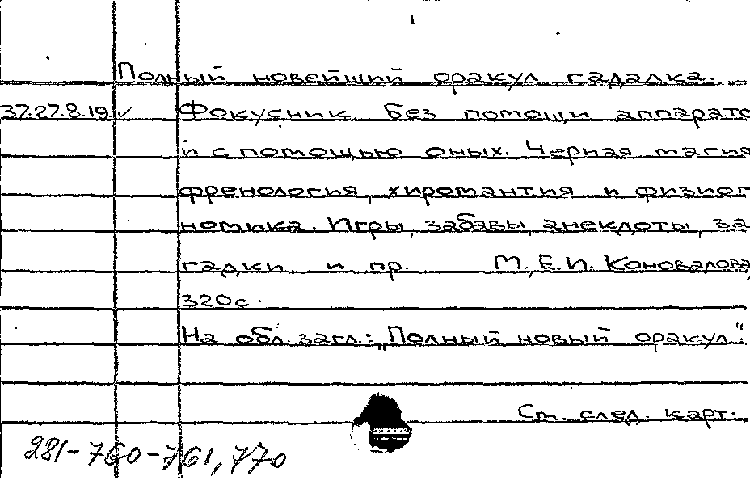 Полный новейший оракул гадалка.
37.27.8.19 ✓ Фокусник без помощи аппарато
и с помощью оных. Черная магия
френология, хиромантия и физиог
номика. Игры, забавы, анекдоты, за
гадки и пр М., Е.И. Коновалова,
320с.
На обл. загл.: „Полный новый оракул".
См. след. карт.
281-760-761, 770